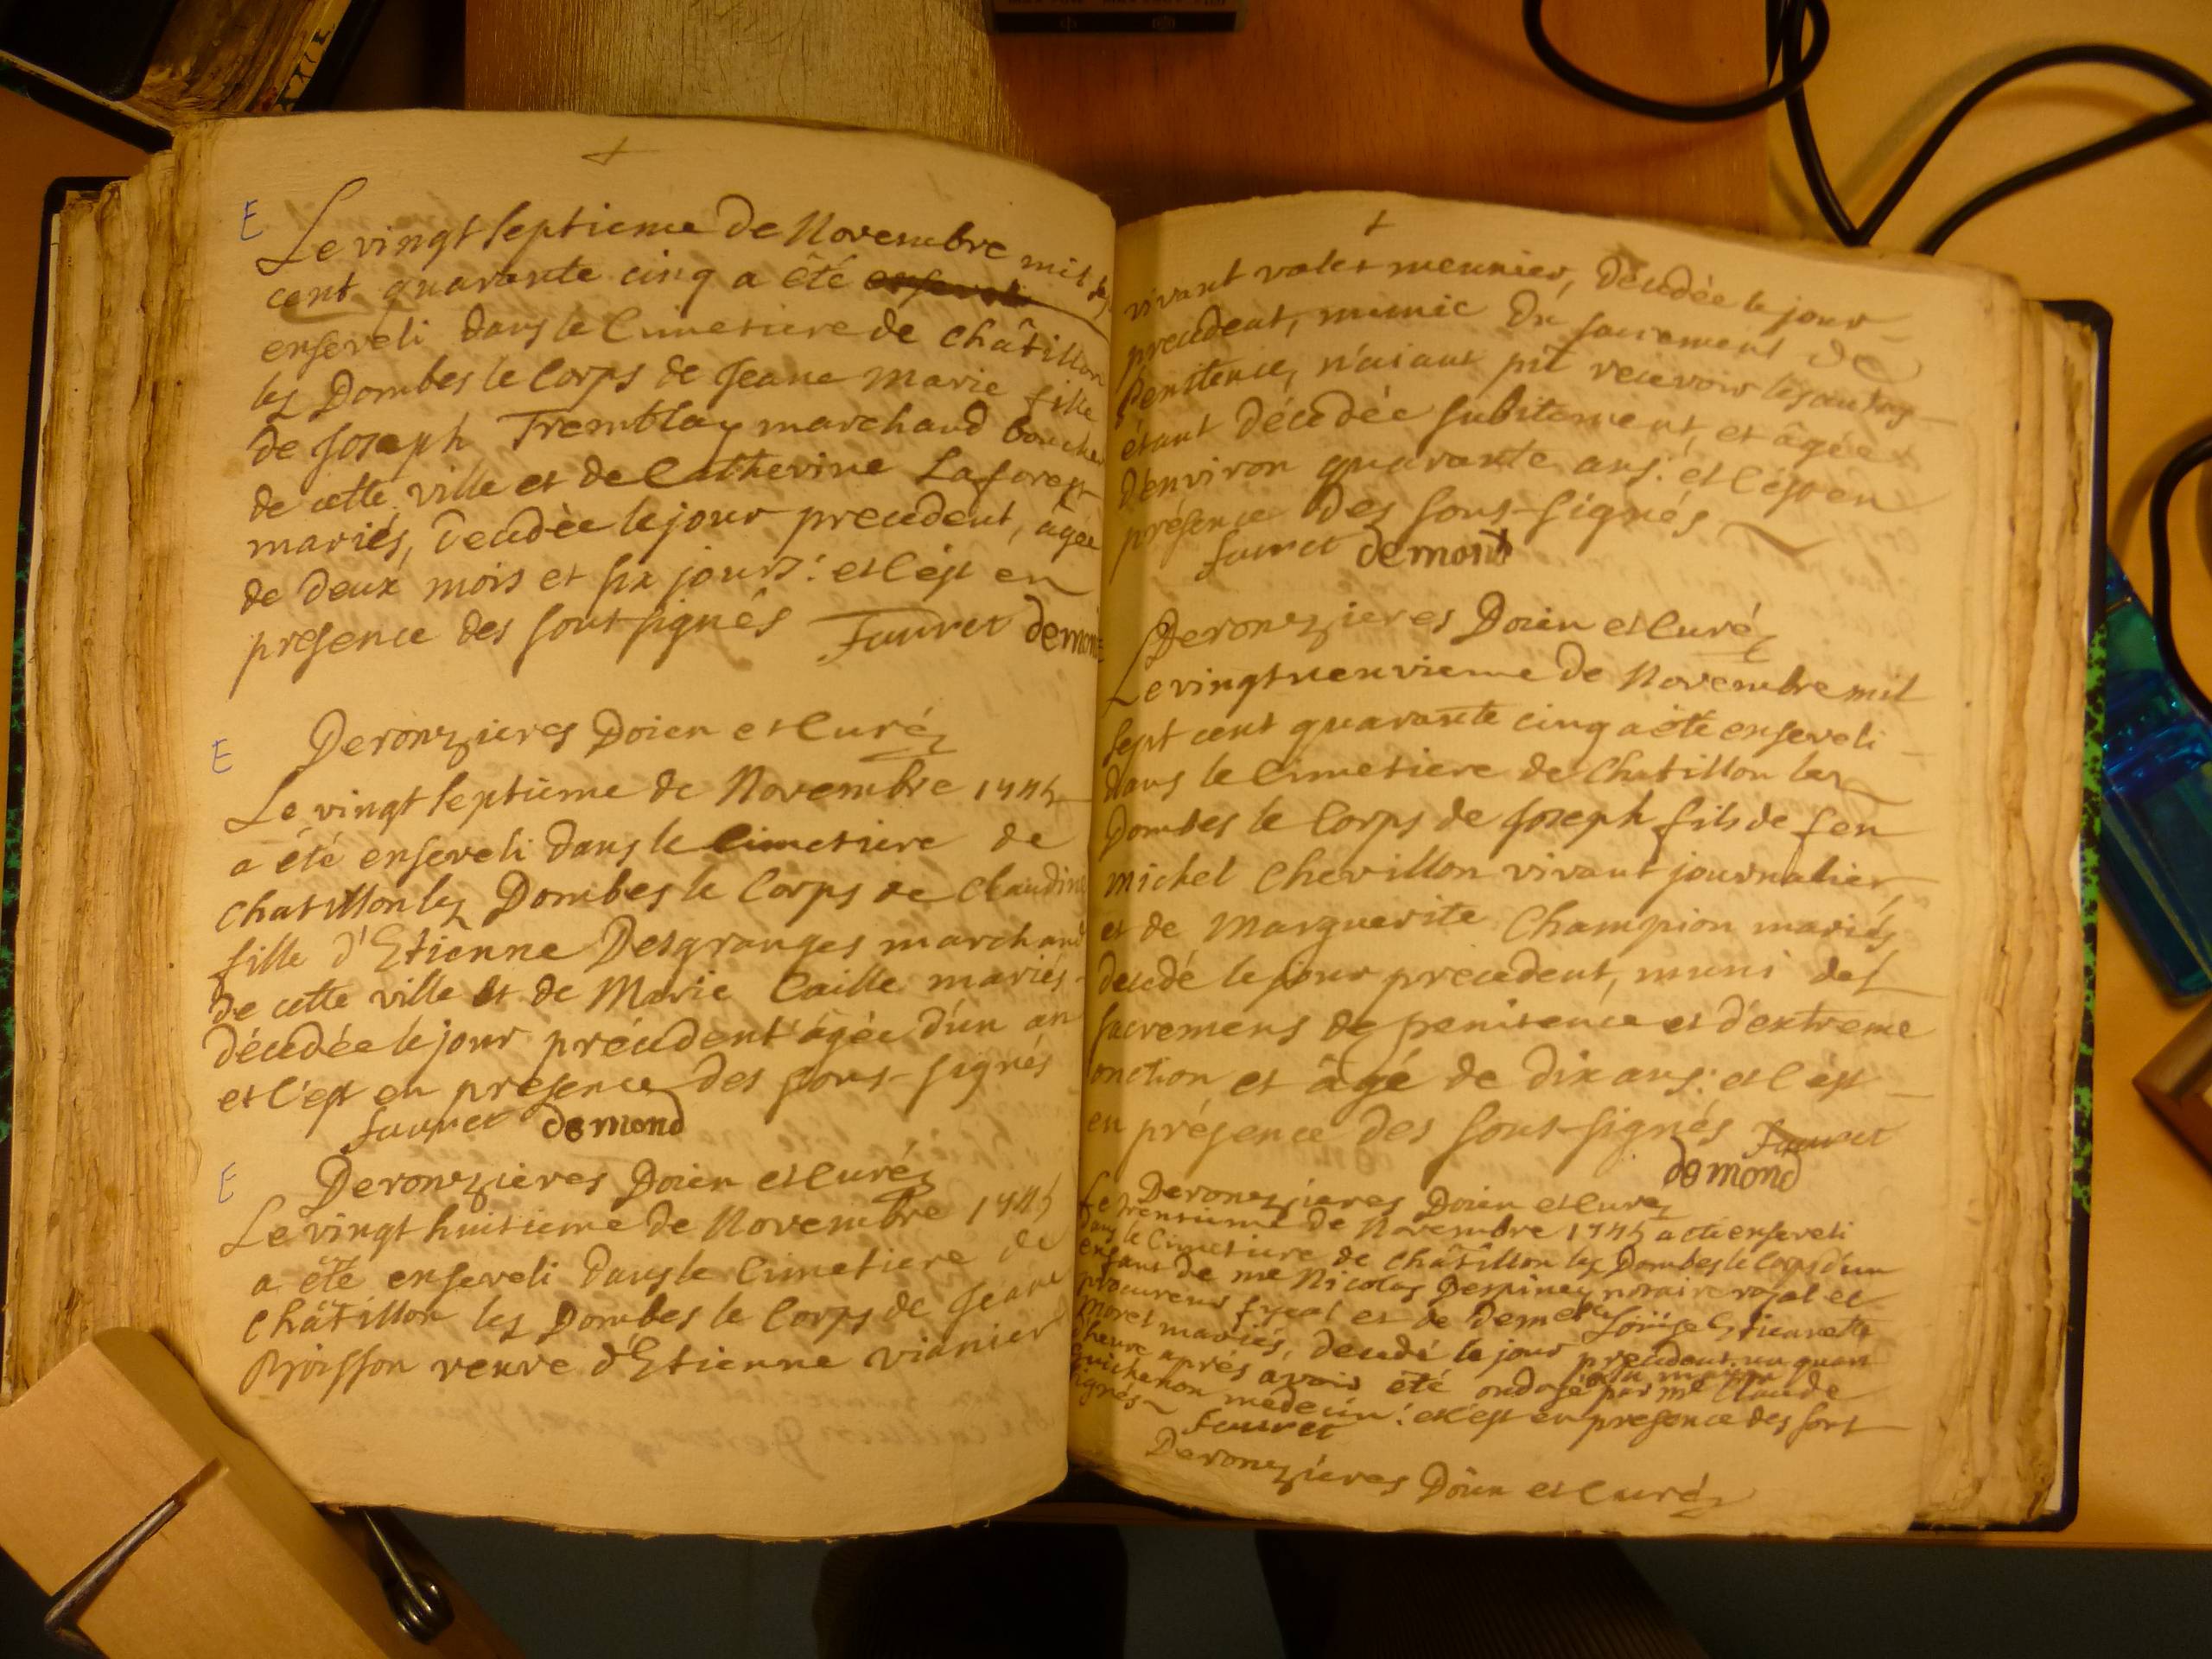 E
Le vingt septieme de Novembre mil
cent quarante cinq a été
enseveli dans le Cimetiere de Châtillon
les Dombes le Corps de Jeane Marie fille
de Joseph Tremblay marchand boucher
de cette ville et de Catherine Laforest
mariés, decedée le jour precedent, âgée
de deux mois et six jours: et c'est en
presence des sous-signés Fauret demond
E
Deronzieres Doien et Curé
Le vingt septieme de Novembre 1745
a été enseveli dans le Cimetiere de
Chatillon les Dombes le Corps de Claudine
fille d'Etienne Desgranges marchand
de cette ville et de Marie Caille mariés
décedée le jour précedent âgée d'un an
et c'est en presence des sous-signés
fauret demond
E
Deronzieres Doien et Curé
Le vingt huitieme de Novembre 1745
a été enseveli dans le Cimetiere de
Châtillon les Dombes le Corps de Jeane
Broisson veuve d'Etienne vianier
vivant valet meunier, décedée le jour
precedent, munie du sacrement de
Penitence, n'aiant pû recevoir les autres
étant décedée subitement, et âgée
d'environ quarante ans: et c'est en
présence des sous-signés
fauret demond
Deronzieres Doien et Curé
Le vingt neuvieme de Novembre mil
sept cent quarante cinq a été enseveli
dans le Cimetiere de Chatillon les
Dombes le Corps de Joseph fils de feu
michel Chevillon vivant journalier,
et de Marguerite Champion mariés
decedé le jour precedent, muni des
sacremens de penitence et d'extreme
onction et âgé de dix ans: et c'est
en présence des sous-signés Fauret
demond
Deronzieres Doien et Curé
Le trentieme de Novembre 1745 a été enseveli
dans le Cimetiere de Châtillon les Dombes le Corps d'un
enfant de me Nicolas Despiney notaire royal et
procureur fyscal et de Demelle Loüise Etienette
Moret mariés, decedé le jour precedent un quart
d'heure aprés avoir été ondoié par me Claude
Guichenon medecin: et c'est en presence des sous
signés
Fauret
Deronzieres Doien et Curé